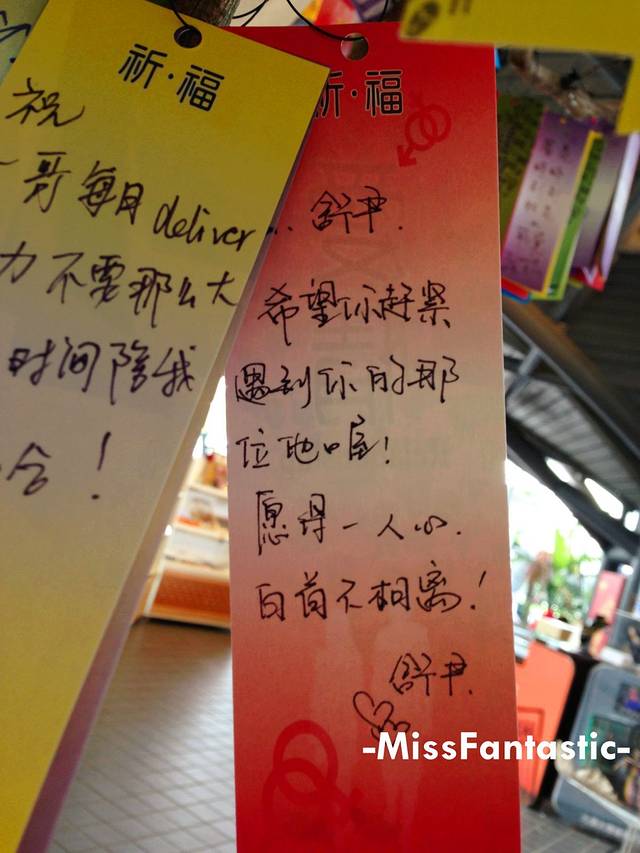 祈·福
祝
一哥每月deliver
力不要那么大
时间陪我
合！
祈·福
舒尹.
希望你赶紧
遇到你的那
位她喔！
愿得一人心.
白首不相离！
舒尹.
-MissFantastic-